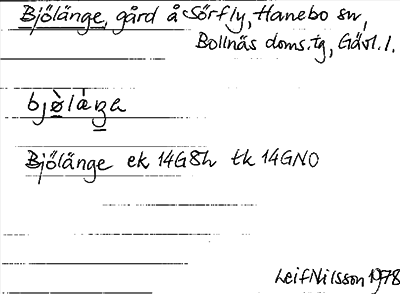 Bjölänge, gård å Sörfly, Hanebo sn,
Bollnäs doms.tg, Gävl. l.
Bjölänge ek 14G8h tk 14GNO
Leif Nilsson 1978